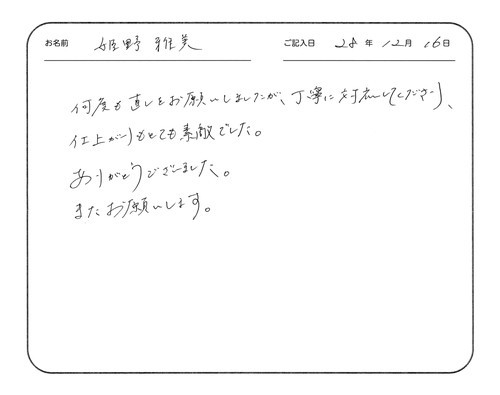 お名前 姫野 雅美 ご記入日 28年12月16日
何度も直しをお願いしましたが、丁寧に対応してくださり、
仕上がりもとても素敵でした。
ありがとうございました。
またお願いします。